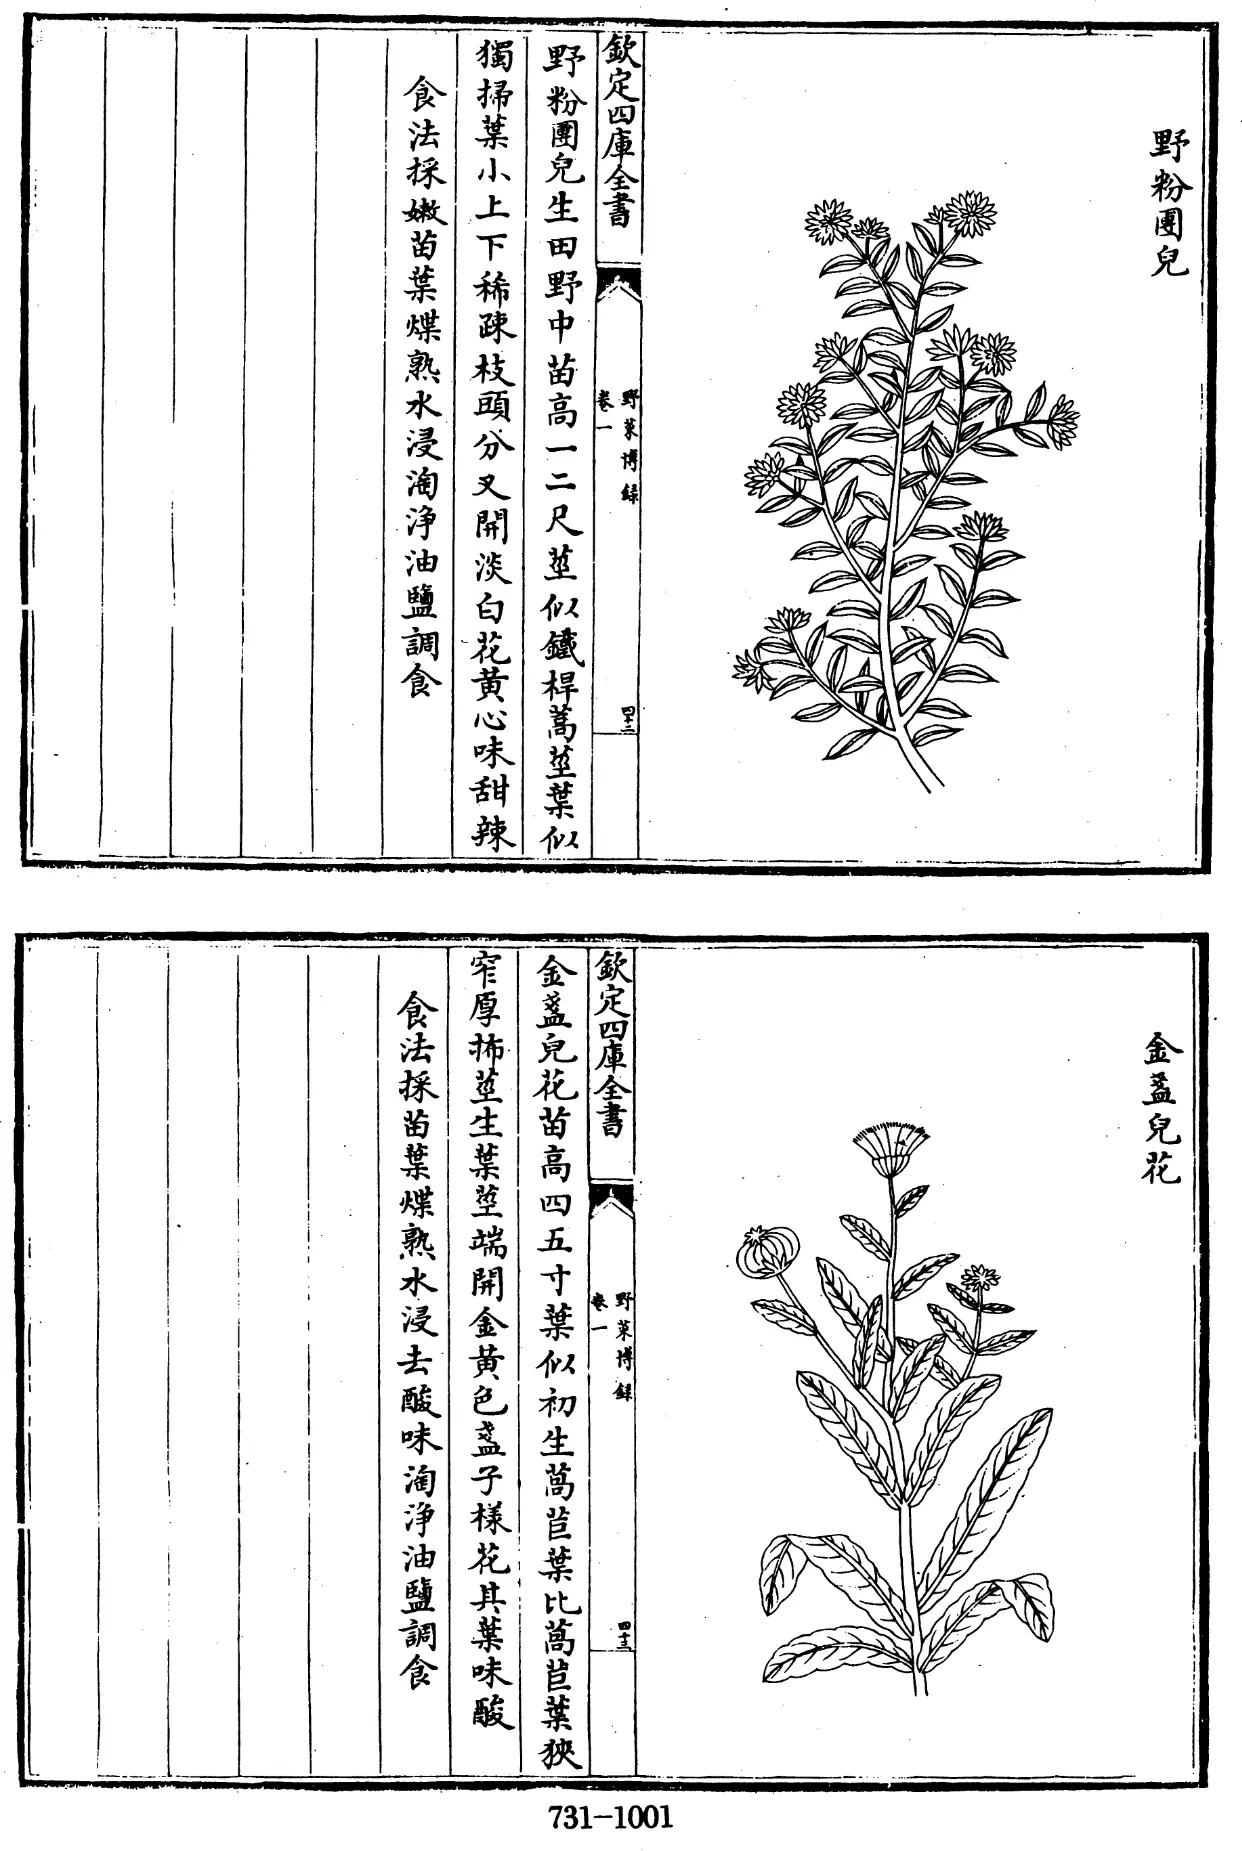 野粉團兒
欽定四庫全書
野菜博錄
卷一
四十二
野粉團兒生田野中苗高一二尺莖似鐵桿蒿莖葉似
獨掃葉小上下稀疎枝頭分叉開淡白花黃心味甜辣
食法採嫩苗葉煠熟水浸淘淨油鹽調食
金盞兒花
欽定四庫全書
野菜博錄
卷一
四十三
金盞兒花苗高四五寸葉似初生萵苣葉比萵苣葉狹
窄厚抪莖生葉莖端開金黃色盞子樣花其葉味酸
食法採苗葉煠熟水浸去酸味淘淨油鹽調食
731-1001